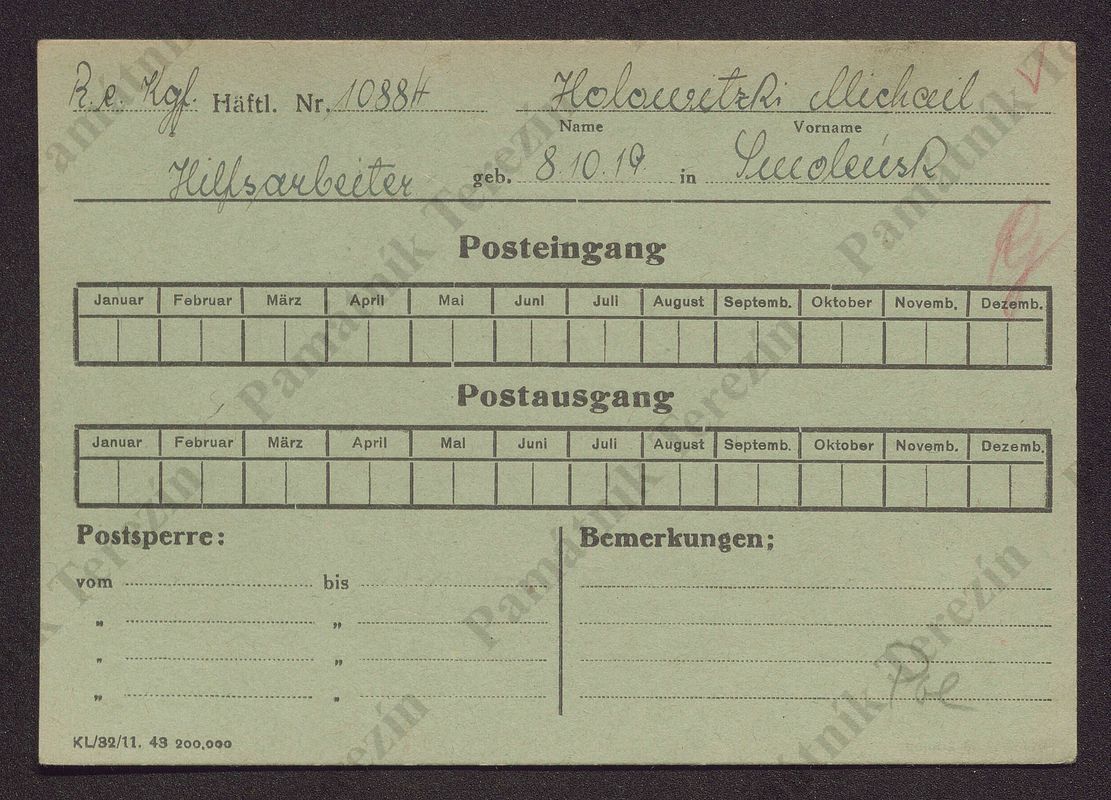 R. e. Kgf. Häftl. Nr. 10884 Holowitzki Michail
Name Vorname
Hilfsarbeiter geb. 8.10.19. in Smolensk
Posteingang
Januar Februar März April Mai Juni Juli August Septemb. Oktober Novemb. Dezemb.
Postausgang
Januar Februar März April Mai Juni Juli August Septemb. Oktober Novemb. Dezemb.
Postsperre: Bemerkungen:
vom bis
" "
" "
" "
KL/32/11. 43 200,000
Památník Terezín